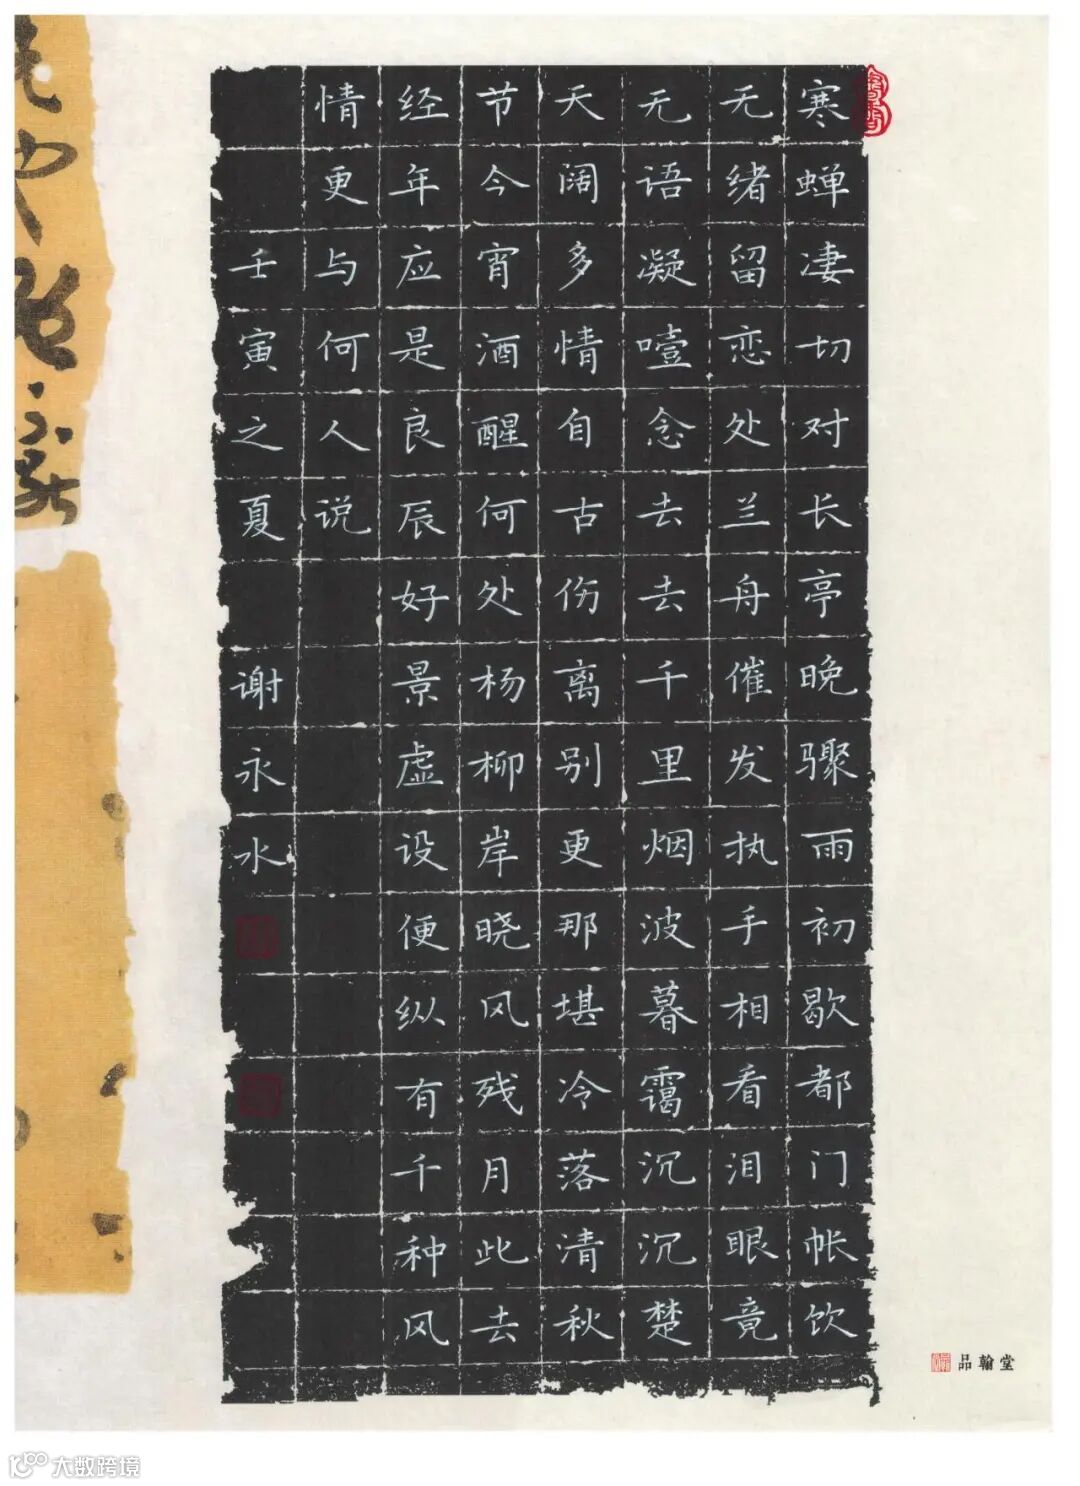 寒蝉凄切对长亭晚骤雨初歇都门帐饮
无绪留恋处兰舟催发执手相看泪眼竟
无语凝噎念去去千里烟波暮霭沉沉楚
天阔多情自古伤离别更那堪冷落清秋
节今宵酒醒何处杨柳岸晓风残月此去
经年应是良辰好景虚设便纵有千种风
情更与何人说
壬寅之夏 谢永水
品翰堂
大数跨境